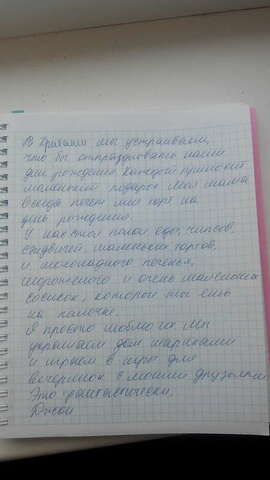 В Британии мы устраиваем,
что бы отпраздновать наши
дни рождения. Каждый приносит
маленький подарок. Моя мама
всегда печет мне торт на
день рождения.
У нас стол полон еды, чипсов,
сэндвичей маленьких тортов,
и шоколадного печенья,
мороженого и очень маленьких
сосисок, которые мы едим
на палочке.
Я просто люблю их. Мы
украшаем дом шариками
и играем в игры для
вечеринок с моими друзьями
Это фантастически,
Джой